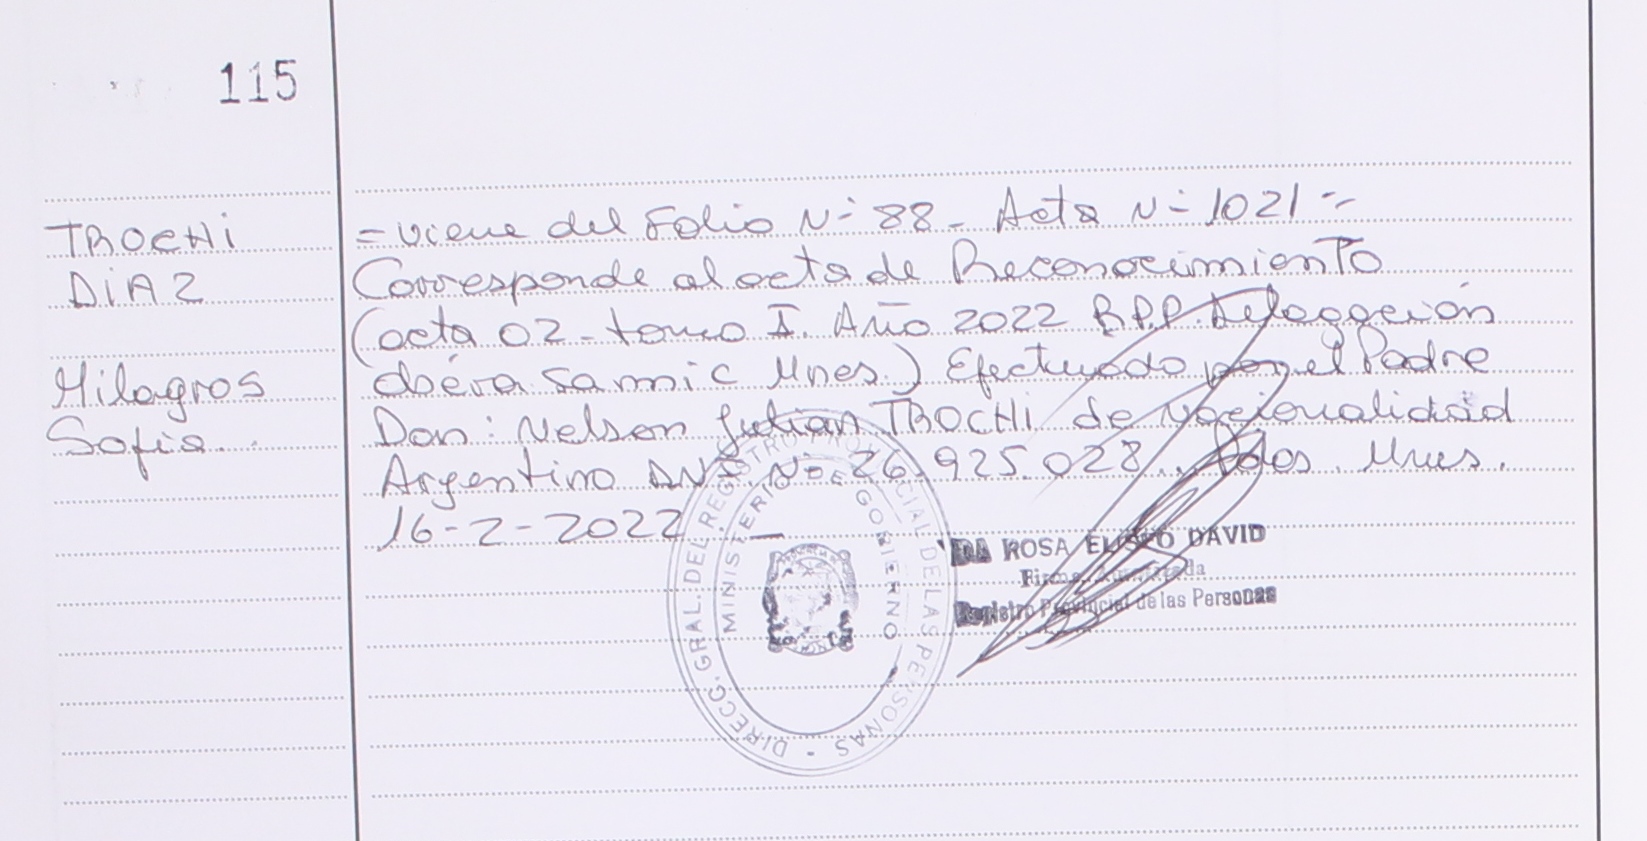 115
TROCHI
DIAZ
Milagros
Sofia.
= Viene del Folio Nº 88 - Acta Nº 1021 =
Corresponde al acta de Reconocimiento
(acta 02 - tomo I. Año 2022 R.P.P. Delegación
oberá Samic Mnes.) Efectuado por el Padre
Don: Nelson Julian TROCHI de Nacionalidad
Argentino DNI. Nº 26.925.028. Pdas. Mnes.
16-2-2022 —
DIRECC. GRAL. DEL REGISTRO PROVINCIAL DE LAS PERSONAS -
MINISTERIO DE GOBIERNO
DA ROSA ELISEO DAVID
Firma Autorizada
Registro Provincial de las Personas